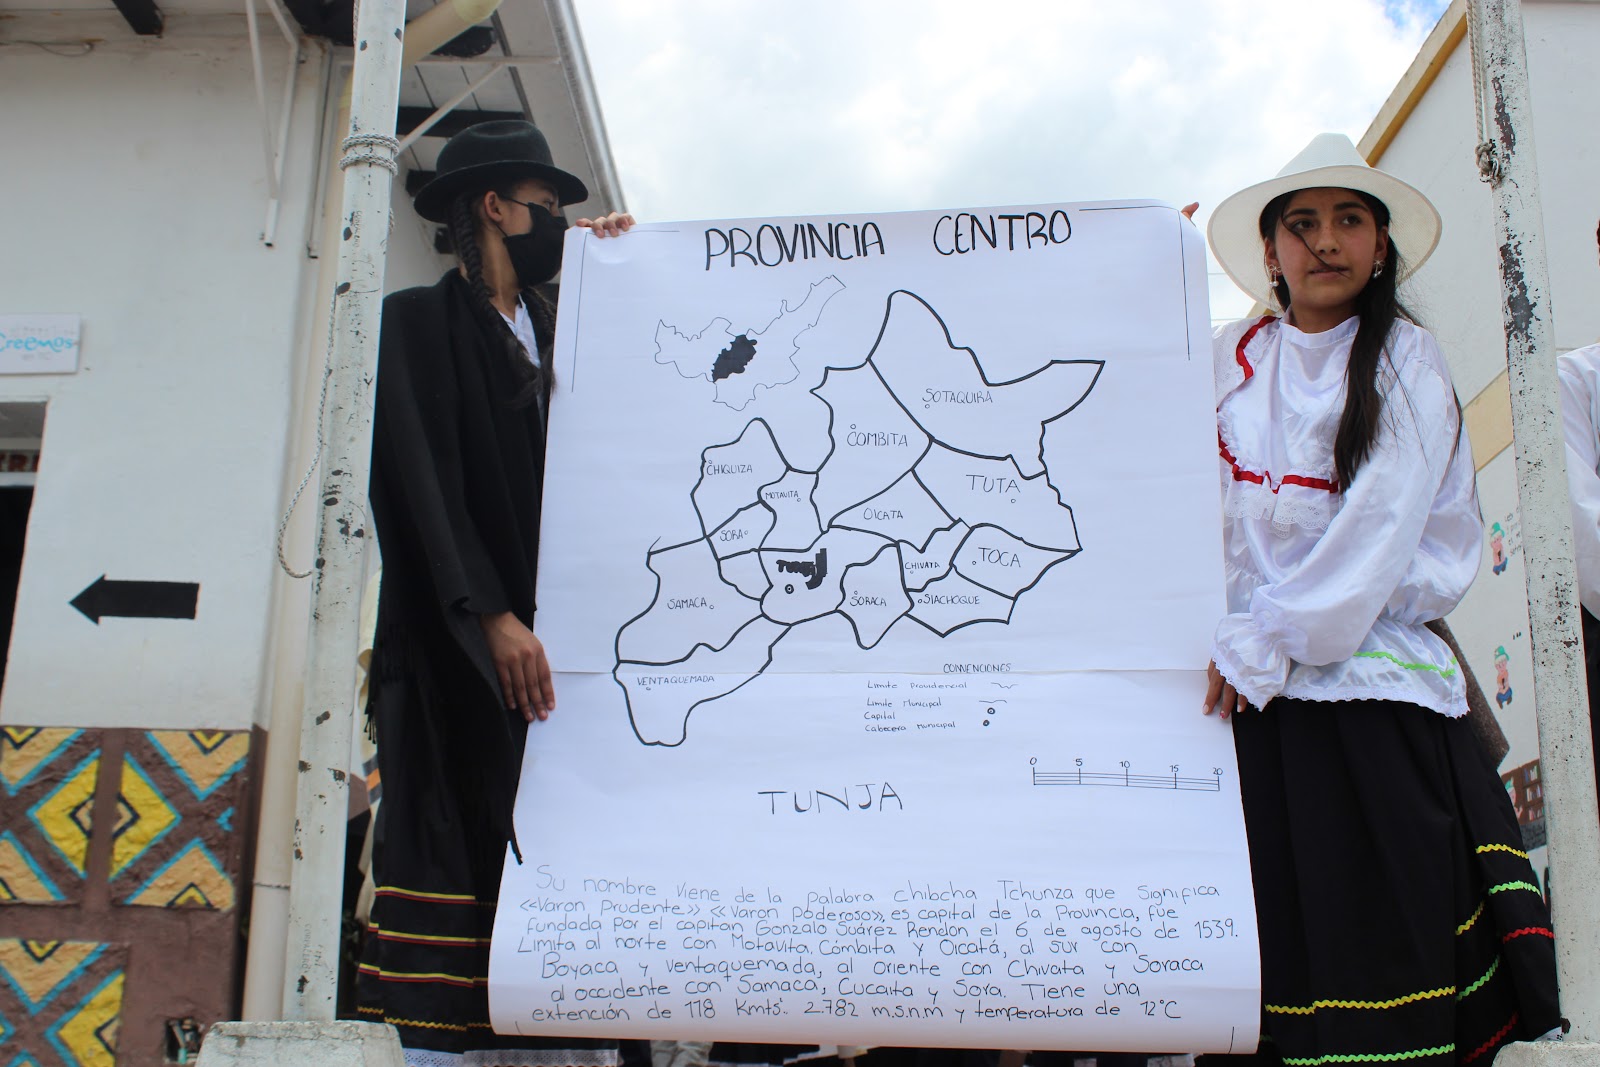 Creemos
PROVINCIA CENTRO
SOTAQUIRA
COMBITA
CHIQUIZA
TUTA
MOTAVITA
OICATA
SORA
TOCA
TUNJA
CHIVATA
SAMACA
SORACA
SIACHOQUE
VENTAQUEMADA
CONVENCIONES
Limite Providencial
Limite Municipal
Capital
Cabecera Municipal
0 5 10 15 20
TUNJA
Su nombre viene de la palabra chibcha Tchunza que significa
«Varon Prudente» «Varon Poderoso», es capital de la Provincia, fue
fundada por el capitan Gonzalo Suárez Rendon el 6 de agosto de 1539.
Limita al norte con Motavita, Cómbita y Oicatá, al sur con
Boyaca y Ventaquemada, al oriente con Chivata y Soraca
al occidente con Samaca, Cucaita y Sora. Tiene una
extención de 118 Kmts². 2.782 m.s.n.m y temperatura de 12°C